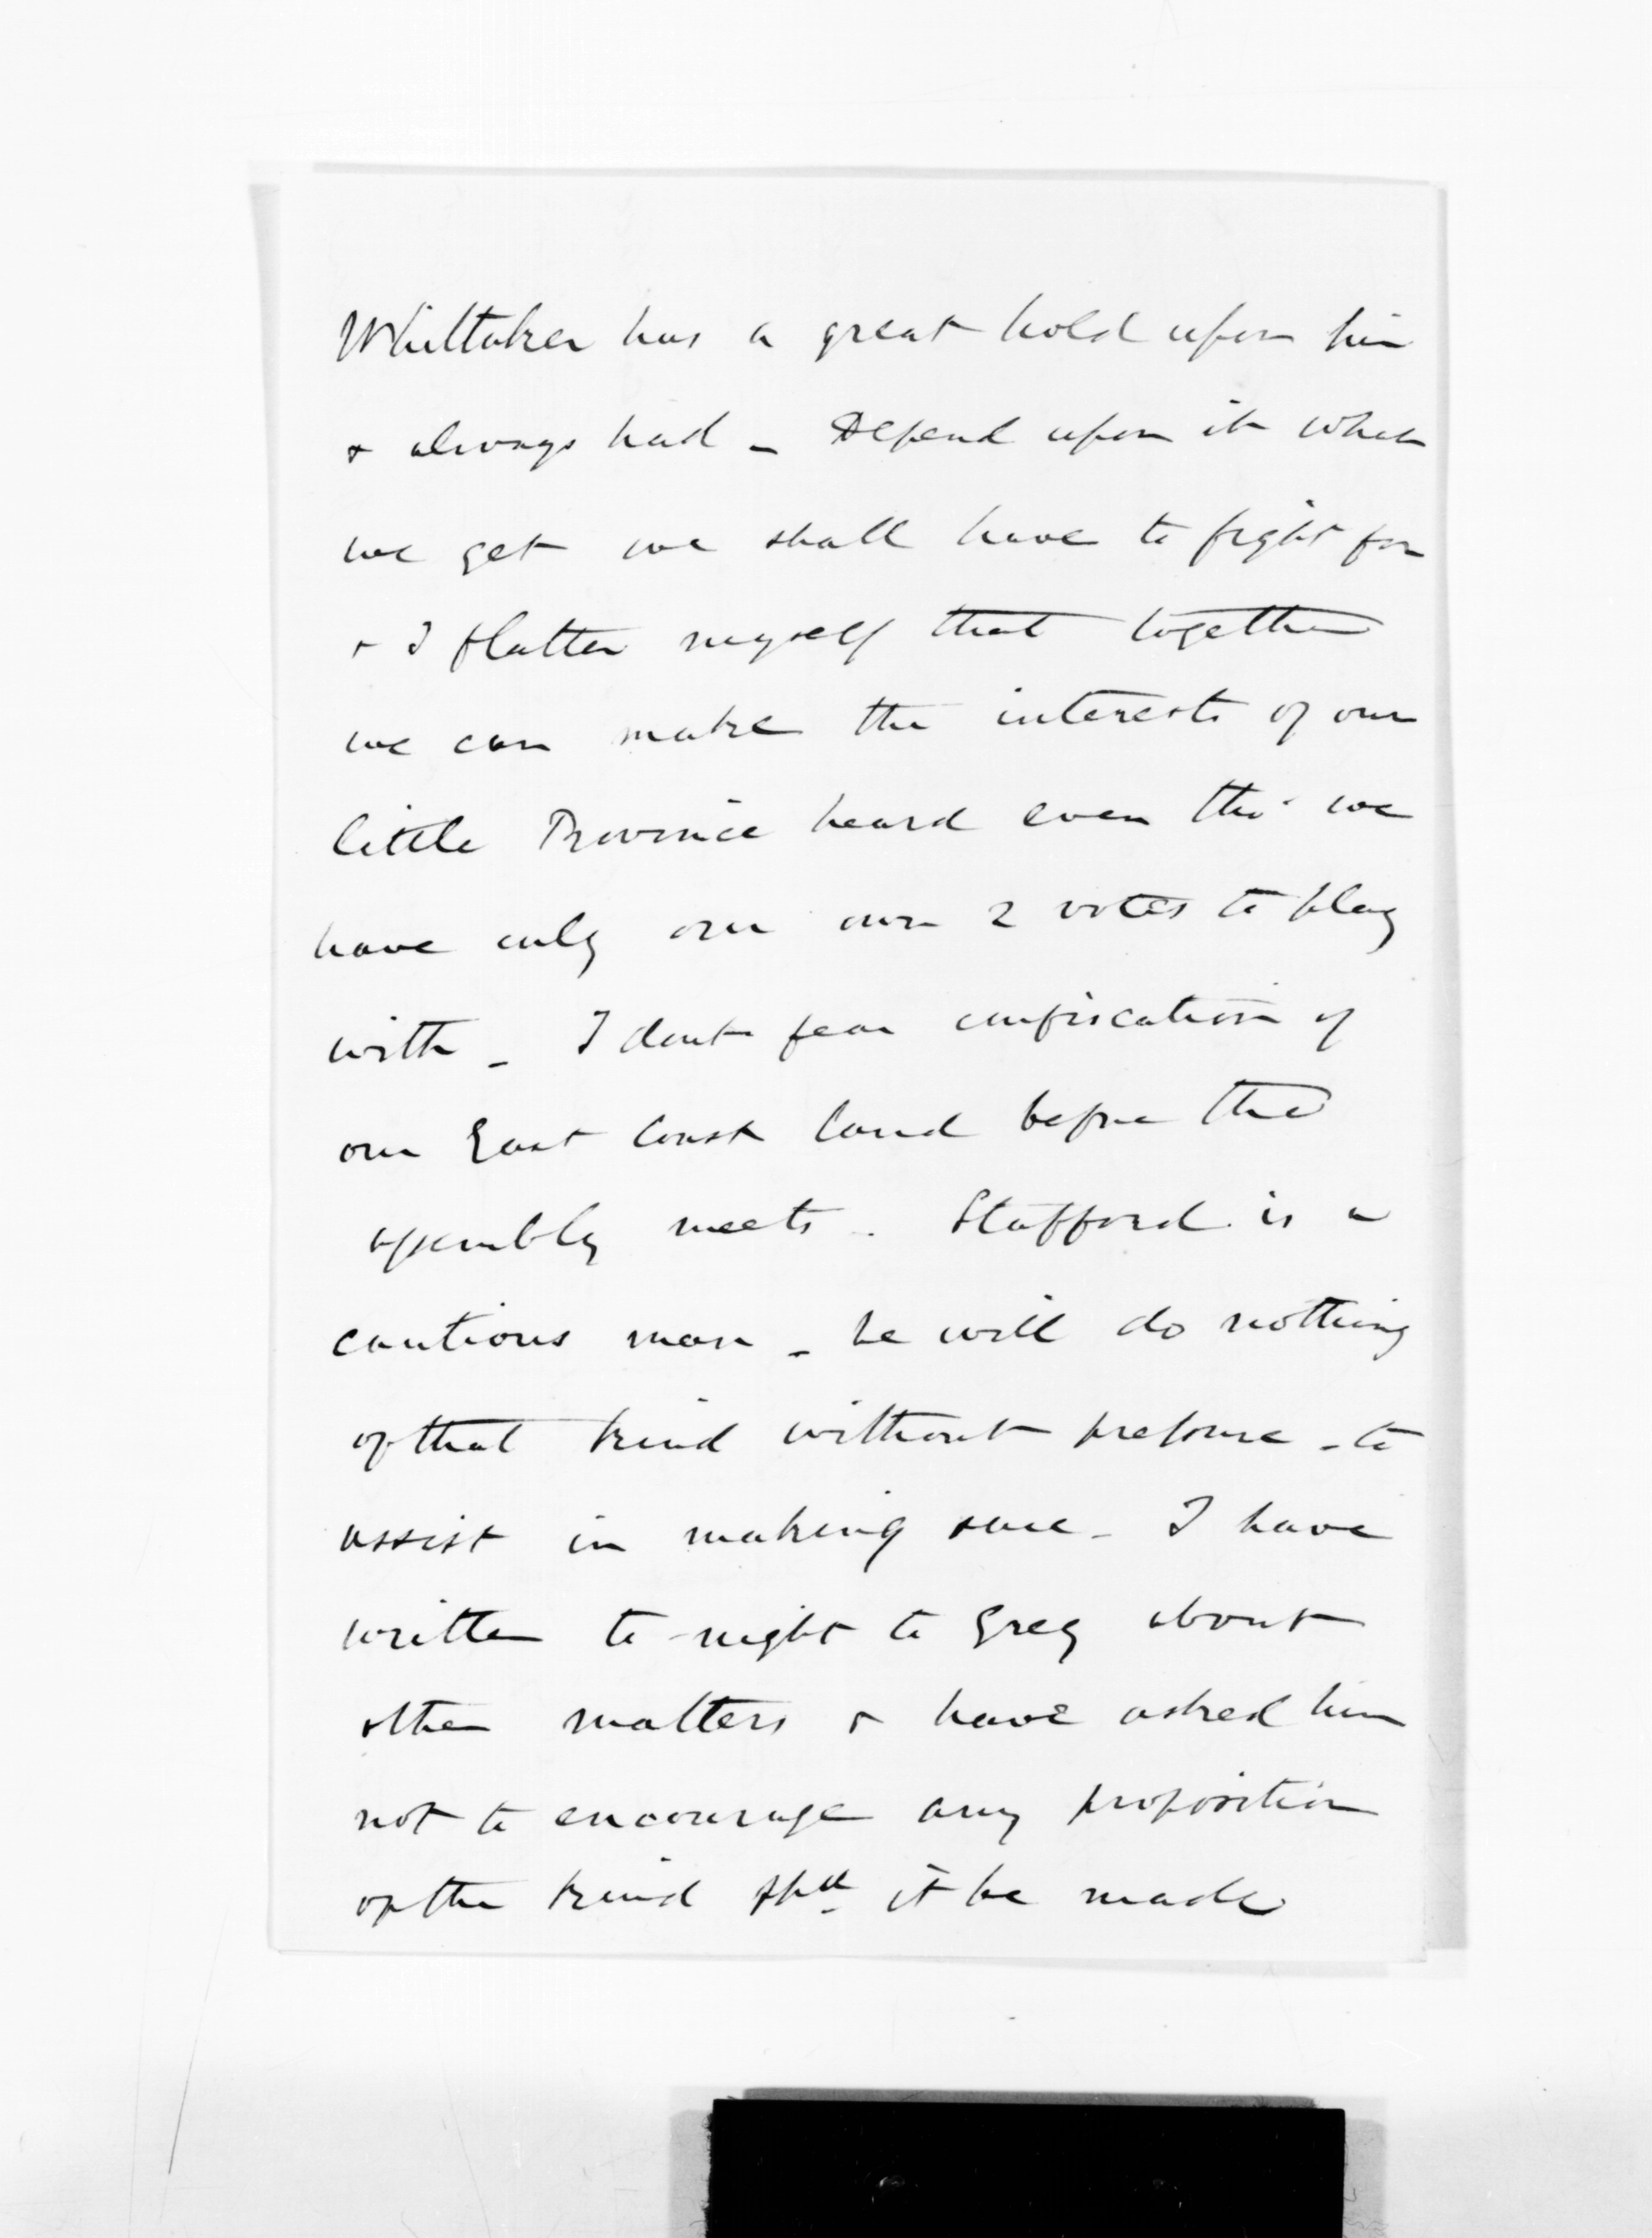 Whittaker has a great hold upon him
& always had - Depend upon it what
we get we shall have to fight for
& I flatter myself that together
we can make the interests of our
little Province heard even tho' we
have only our own 2 votes to play
with - I dont fear confiscation of
our East Coast land before the
assembly meets - Stafford is a
cautious man - he will do nothing
of that kind without pressure - to
assist in making sure - I have
written to-night to Grey about
other matters & have asked him
not to encourage any proposition
of the kind shd it be made